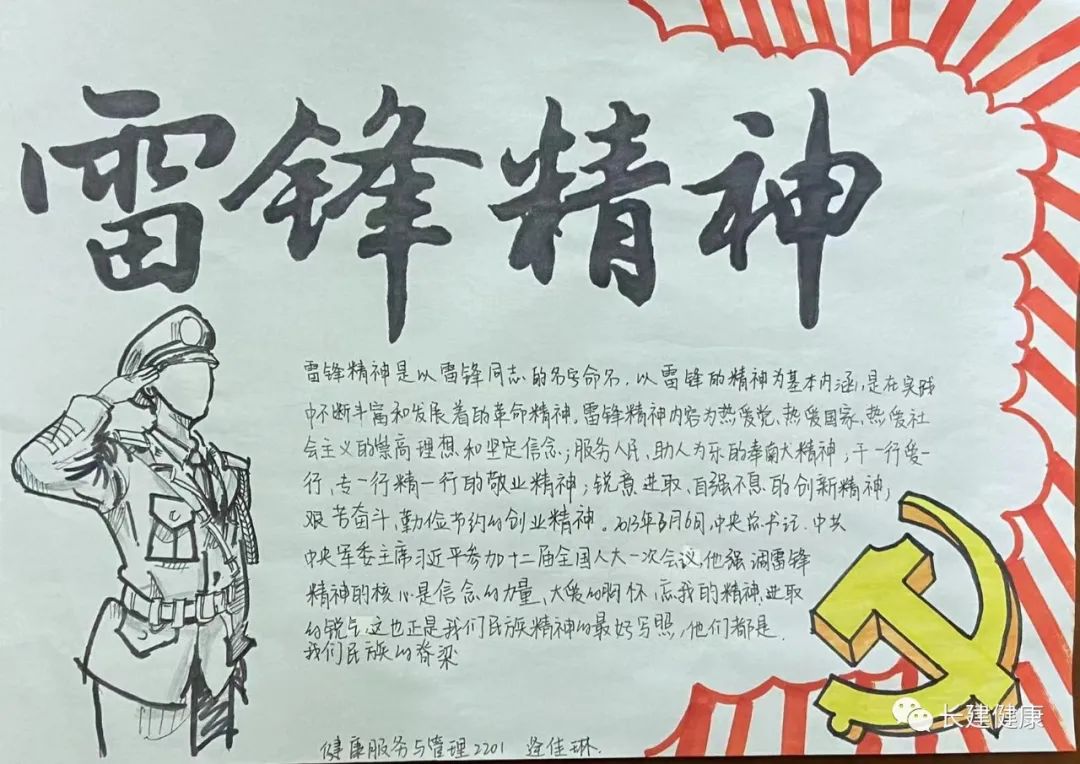 雷锋精神
雷锋精神是以雷锋同志的名字命名,以雷锋的精神为基本内涵,是在实践
中不断丰富和发展着的革命精神,雷锋精神内容为热爱党、热爱国家、热爱社
会主义的崇高理想和坚定信念;服务人民、助人为乐的奉献精神;干一行爱一
行、专一行精一行的敬业精神;锐意进取、自强不息的创新精神;
艰苦奋斗、勤俭节约的创业精神。2013年3月6日,中央总书记、中共
中央军委主席习近平参加十二届全国人大一次会议,他强调雷锋
精神的核心是信念的力量、大爱的胸怀、忘我的精神、进取
的锐气,这也正是我们民族精神的最好写照,他们都是
我们民族的脊梁
健康服务与管理2201 佳琳
长建健康